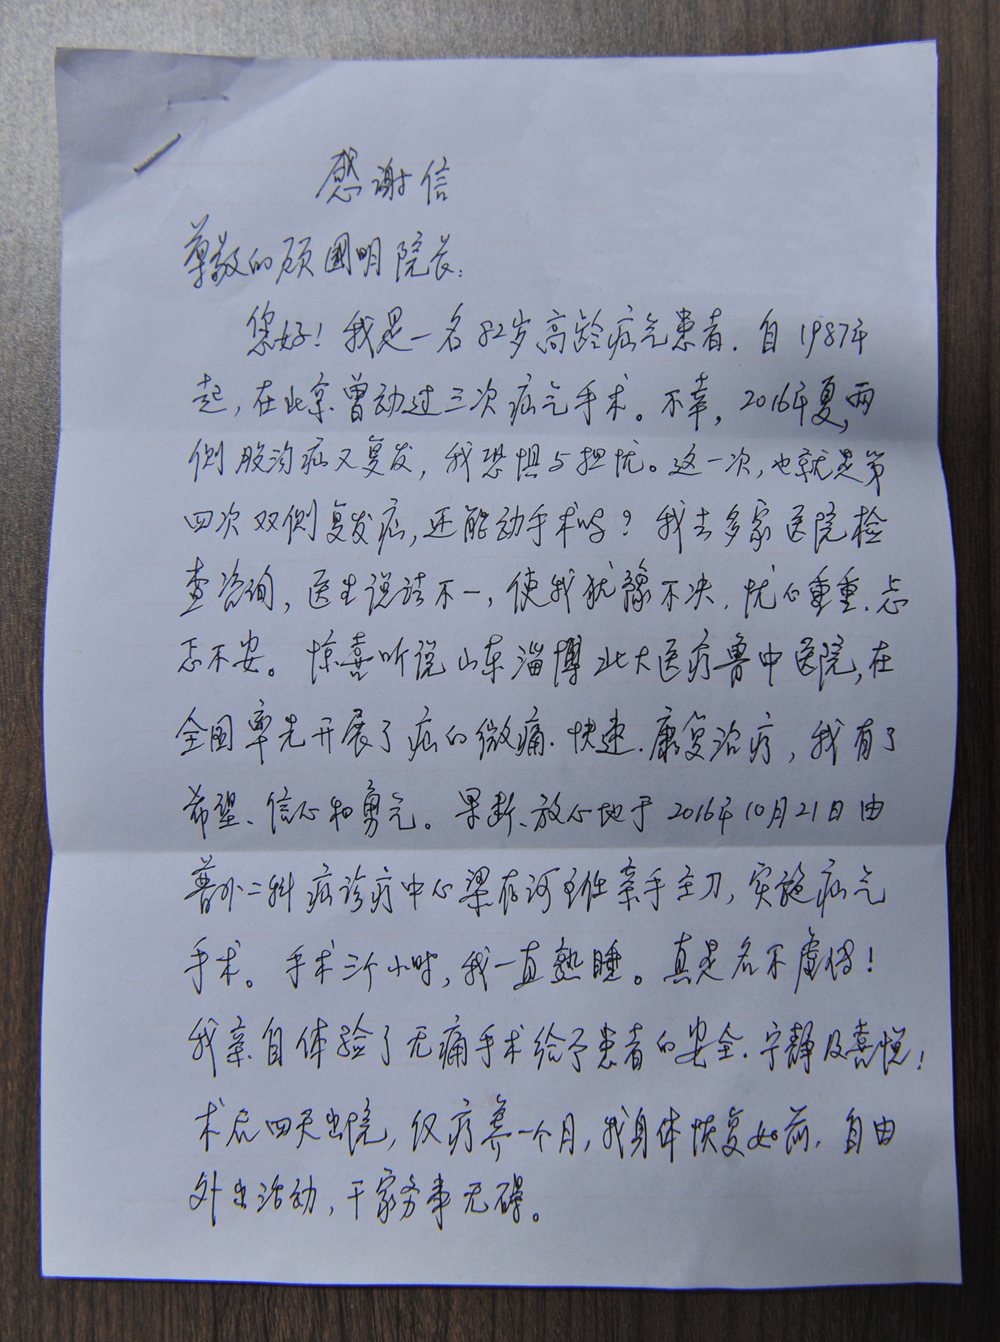 感谢信
尊敬的顾国明院长:
您好!我是一名82岁高龄疝气患者.自1987年
起,在北京曾动过三次疝气手术。不幸,2016年夏,两
侧股沟疝又复发,我恐惧与担忧。这一次,也就是第
四次双侧复发疝,还能动手术吗?我去多家医院检
查咨询,医生说法不一,使我犹豫不决.忧心重重.忐
忑不安。惊喜听说山东淄博北大医疗鲁中医院,在
全国率先开展了疝的微痛.快速.康复治疗,我有了
希望、信心和勇气。果断、放心地于2016年10月21日由
普外二科疝诊疗中心梁存河主任亲手主刀,实施疝气
手术。手术三个小时,我一直熟睡。真是名不虚传!
我亲自体验了无痛手术给予患者的安全.宁静及喜悦!
术后四天出院,仅疗养一个月,我身体恢复如前.自由
外出活动,干家务事无碍。